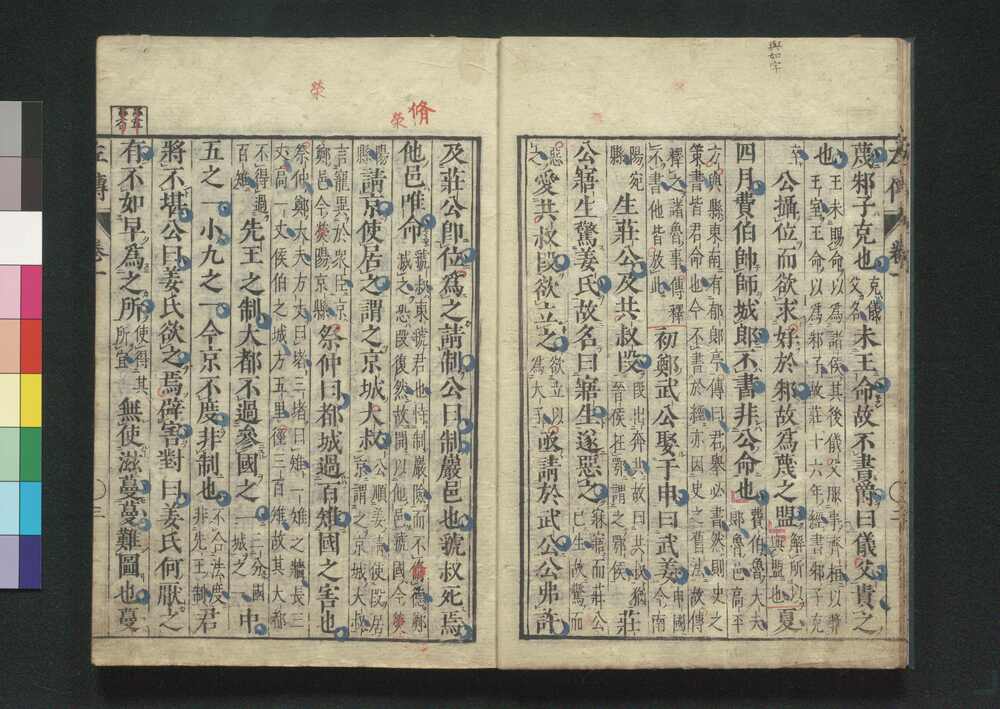 與如字
蔑邾子克也克儀父名未王命故不書爵曰儀父貴之
也王未賜命以爲諸侯其後儀父服事齊桓以獎王室王命以爲邾子故莊十六年經書邾子克
卒公攝位而欲求好於邾故爲蔑之盟解所以與盟也夏
四月費伯帥師城郎不書非公命也費伯魯大夫郎魯邑高平
方與縣東南有郁郎亭傳曰君舉必書然則史之策書皆君命也今不書於經亦因史之舊法故傳
釋之諸魯事傳釋不書他皆放此初鄭武公娶于申曰武姜申國今南
陽宛縣生莊公及共叔段段出奔共故曰共叔猶晉侯在鄂謂之鄂侯莊
公寤生驚姜氏故名曰寤生遂惡之寐寤而莊公已生故驚而
惡之愛共叔段欲立之欲立以爲大子亟請於武公公弗許
脩
榮
榮
及莊公即位爲之請制公曰制巖邑也虢叔死焉
他邑唯命虢叔東虢君也恃制巖險而不脩德鄭滅之恐段復然故開以他邑虢國今熒
陽縣請京使居之謂之京城大叔公順姜請使段居京謂之京城大叔
言寵異於衆臣京鄭邑今熒陽京縣祭仲曰都城過百雉國之害也
祭仲鄭大夫方丈曰堵三堵曰雉一雉之牆長三丈高一丈侯伯之城方五里徑三百雉故其大都
不得過百雉先王之制大都不過參國之一三分國城之一中
五之一小九之一今京不度非制也不合法度非先王制君
將不堪公曰姜氏欲之焉辟害對曰姜氏何厭之
有不如早爲之所使得其所宜無使滋蔓蔓難圖也蔓
左傳 卷一 三